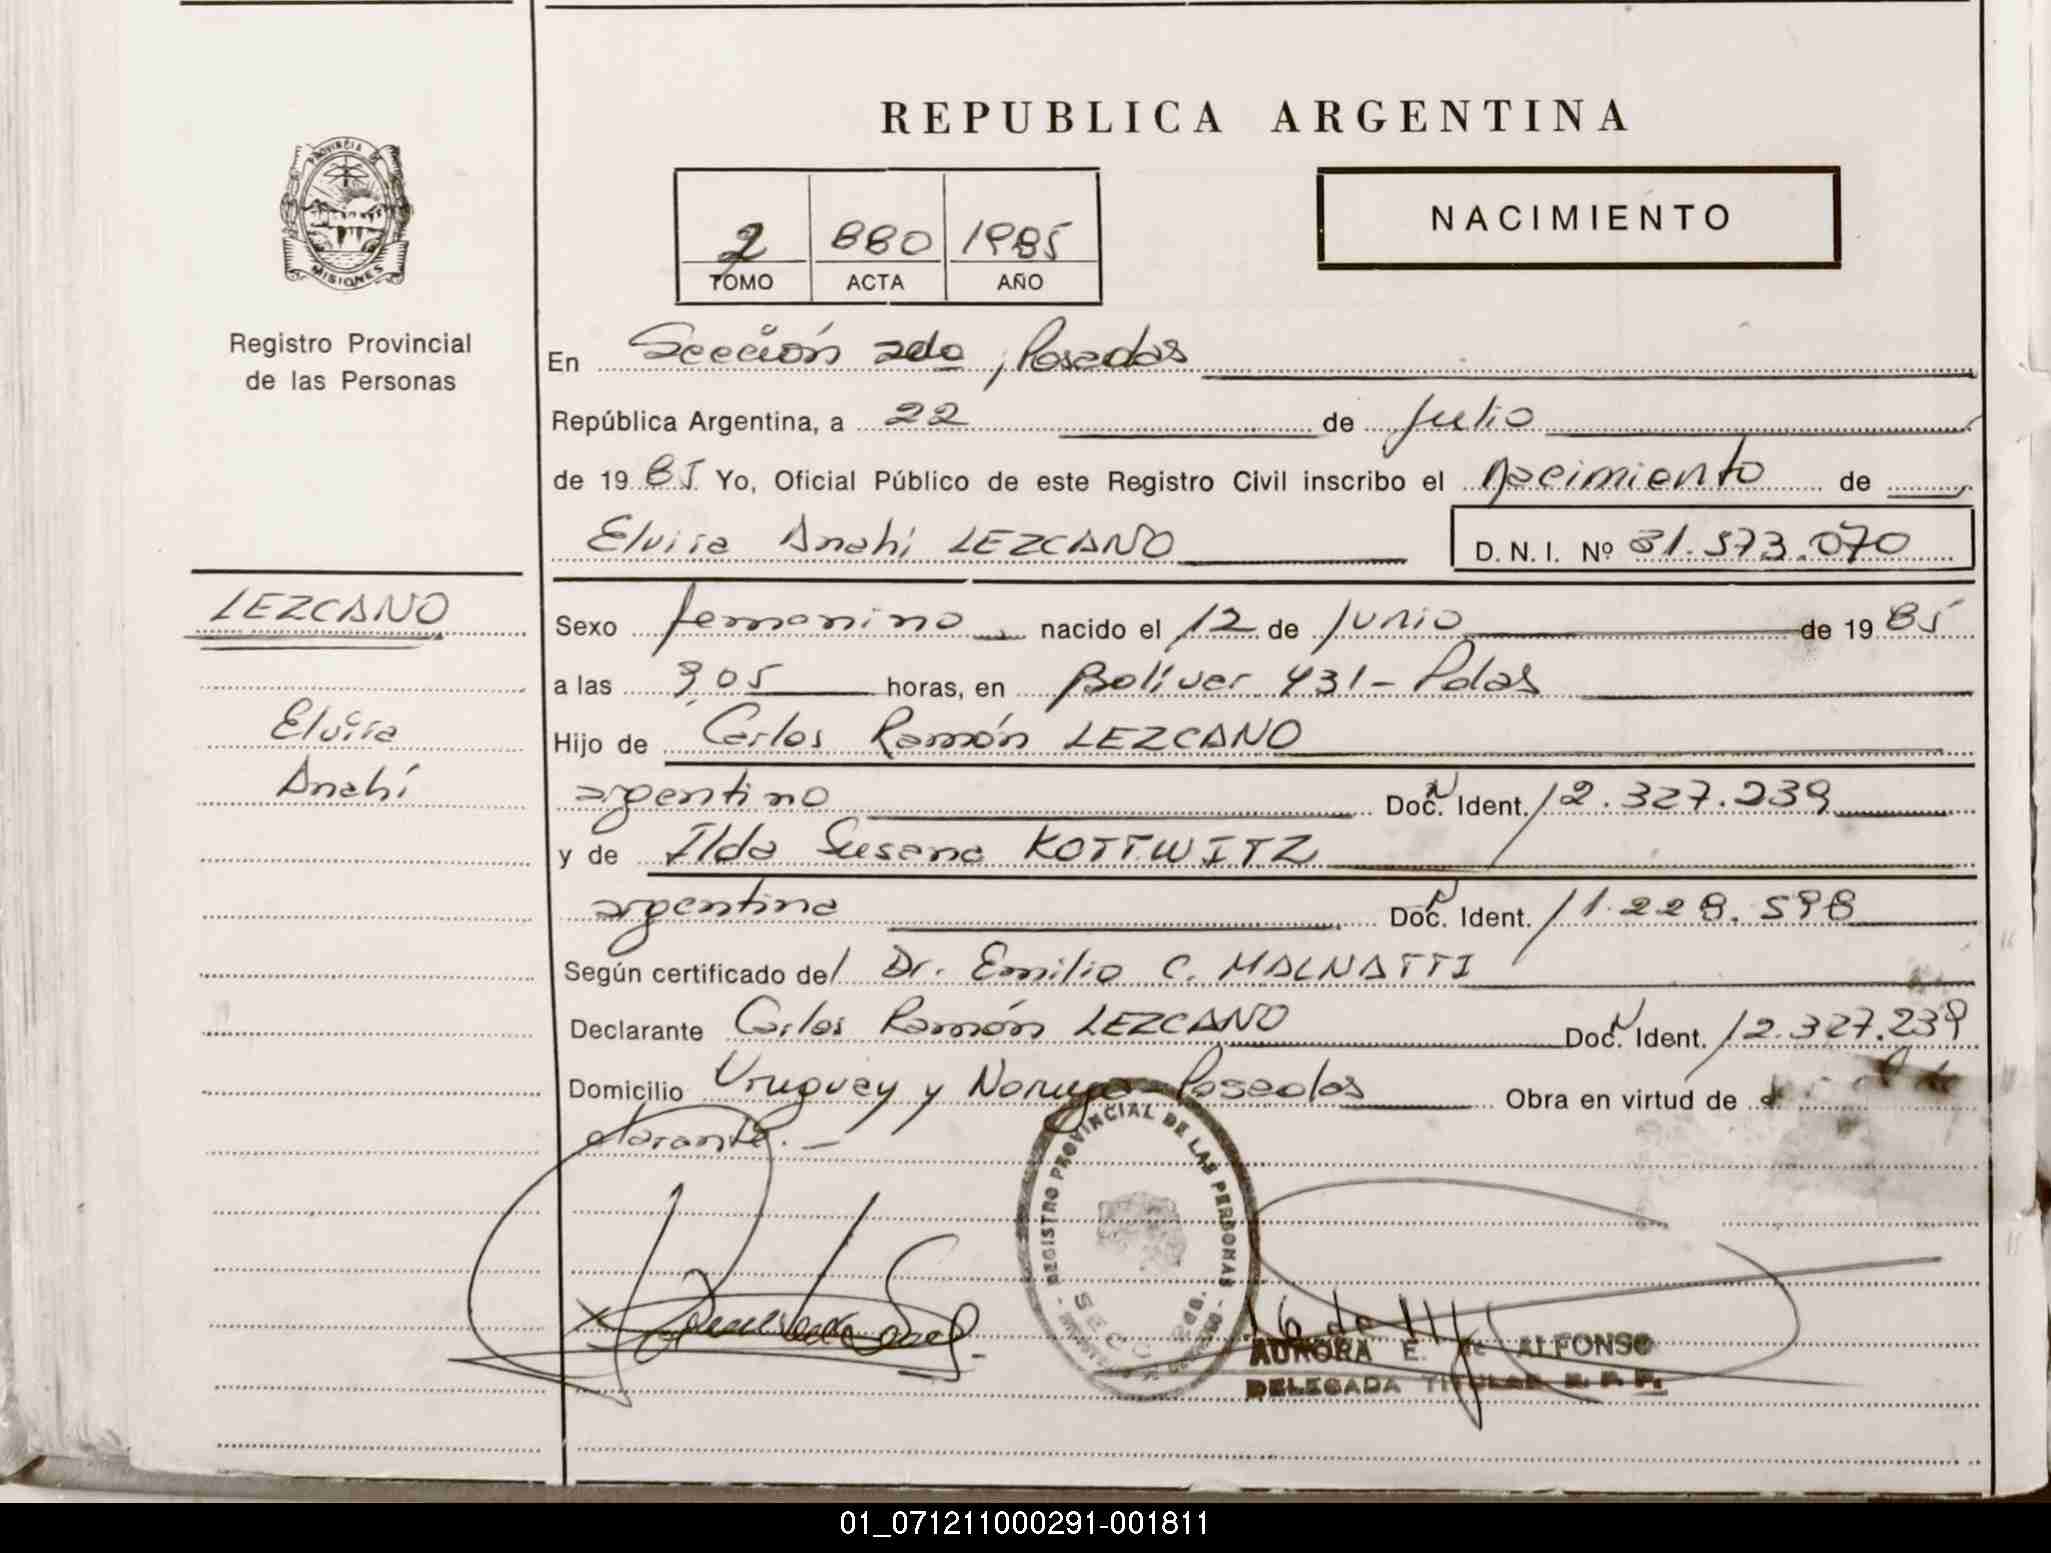 REPUBLICA ARGENTINA
PROVINCIA DE
MISIONES
Registro Provincial
de las Personas
2 880 1985
TOMO ACTA AÑO
NACIMIENTO
En Sección 2da, Posadas
República Argentina, a 22 de Julio
de 1985 Yo, Oficial Público de este Registro Civil inscribo el nacimiento de
Elvira Anahi LEZCANO D. N. I. Nº 31.573.070
LEZCANO
Elvira
Anahí
Sexo femenino nacido el 12 de Junio de 1985
a las 9,05 horas, en Bolívar 431 - Pdas
Hijo de Carlos Ramón LEZCANO
argentino Doc. Ident. 12.327.239
y de Ilda Susana KOTTWITZ
argentina Doc. Ident. 11.228.598
Según certificado del Dr. Emilio C. MALNATTI
Declarante Carlos Ramón LEZCANO Doc. Ident. 12.327.239
Domicilio Uruguay y Noruega - Posadas Obra en virtud de
clarante. -
REGISTRO PROVINCIAL DE LAS PERSONAS
AURORA E. de ALFONSO
DELEGADA TITULAR R. P. P.
01_071211000291-001811